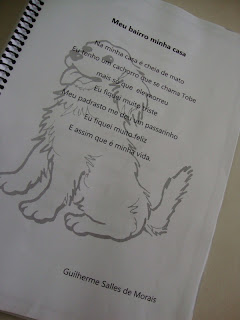 Meu bairro minha casa
Na minha casa é cheia de mato
Eu tenho um cachorro que se chama Tobe
mais só que ele morreu
Eu fiquei muito triste
Meu padrasto me deu um passarinho
Eu fiquei muito feliz
E assim que é minha vida.
Guilherme Salles de Morais